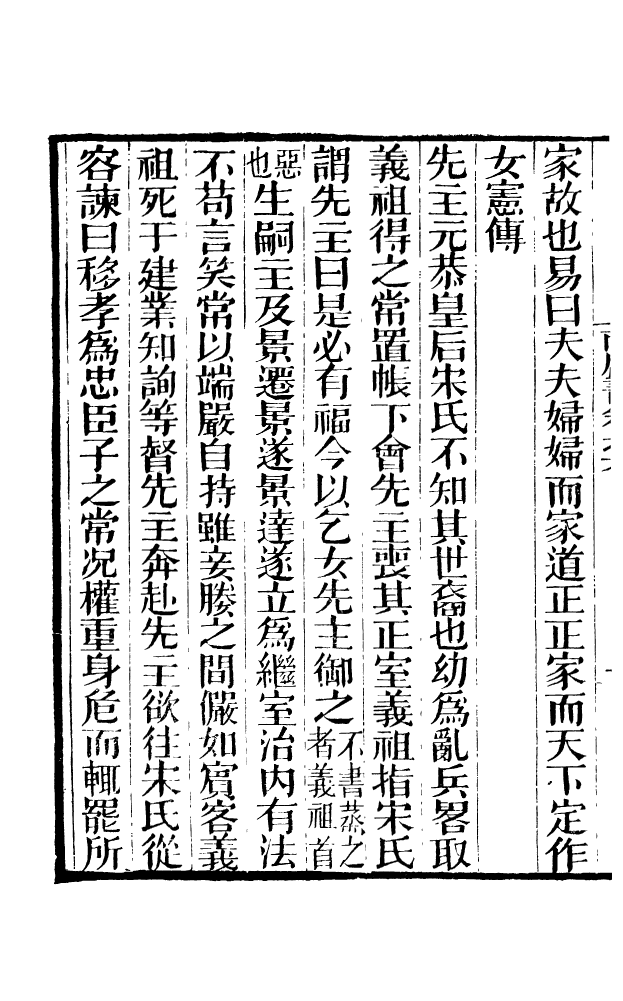 家故也易曰夫夫婦婦而家道正正家而天下定作
女憲傳
先主元恭皇后宋氏不知其世裔也幼爲亂兵畧取
義祖得之常置帳下會先主喪其正室義祖指宋氏
謂先主曰是必有福今以乞女先主御之不書蒸之者義祖首
惡也生嗣主及景遷景遂景達遂立爲繼室治内有法
不苟言笑常以端嚴自持雖妾媵之間儼如賓客義
祖死于建業知詢等督先主奔赴先主欲往宋氏從
容諫曰移孝爲忠臣子之常况權重身危而輒罷所